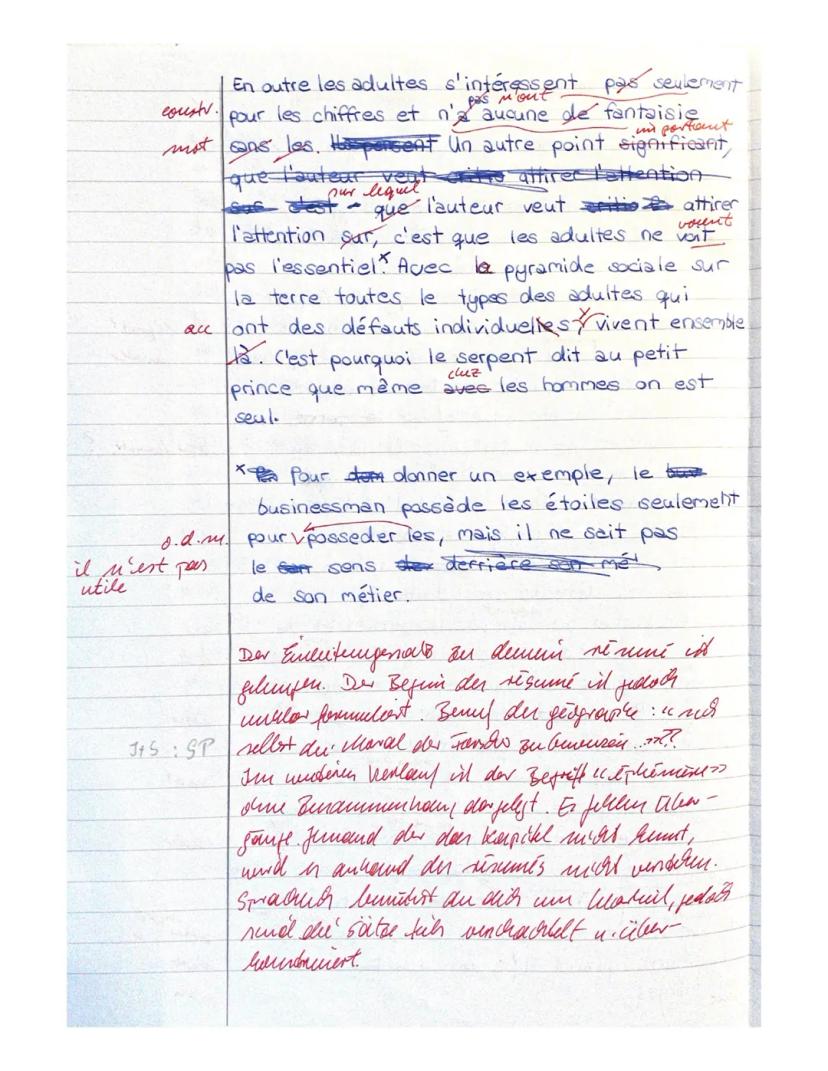 En outre les adultes s'intéressent pas seulement
pas n'ont
constr. pour les chiffres et n'a aucune de fantaisie
important
mot sans les. Un autre point significant,
que l'auteur veut attirer l'attention
sur lequel
c'est - que l'auteur veut attirer
voient
l'attention sur, c'est que les adultes ne voit
pas l'essentiel.x Avec la pyramide sociale sur
la terre toutes le types des adultes qui
acc ont des défauts individuelles, vivent ensemble
là. C'est pourquoi le serpent dit au petit
chez
prince que même avec les hommes on est
seul.
x Pour donner un exemple, le
businessman possède les étoiles seulement
o.d.m. pour posseder les, mais il ne sait pas
il n'est pas
utile
le sens derrière son mé
de son métier.
Der Einleitungssatz zu deinem résumé ist
gelungen. Der Beginn des résumé ist jedoch
unklar formuliert. Beruf des géographe : « sich
I+S : 5P selbst die Moral der zu beweisen...»??
Im weiteren Verlauf ist der Begriff « Ephémère»
ohne Zusammenhang dargelegt. Es fehlen Über-
gänge. Jemand der das Kapitel nicht kennt,
wird es anhand des résumés nicht verstehen.
Sprachlich bemühst du dich um, jedoch
sind die Sätze teils verschachtelt u. über-
konstruiert.